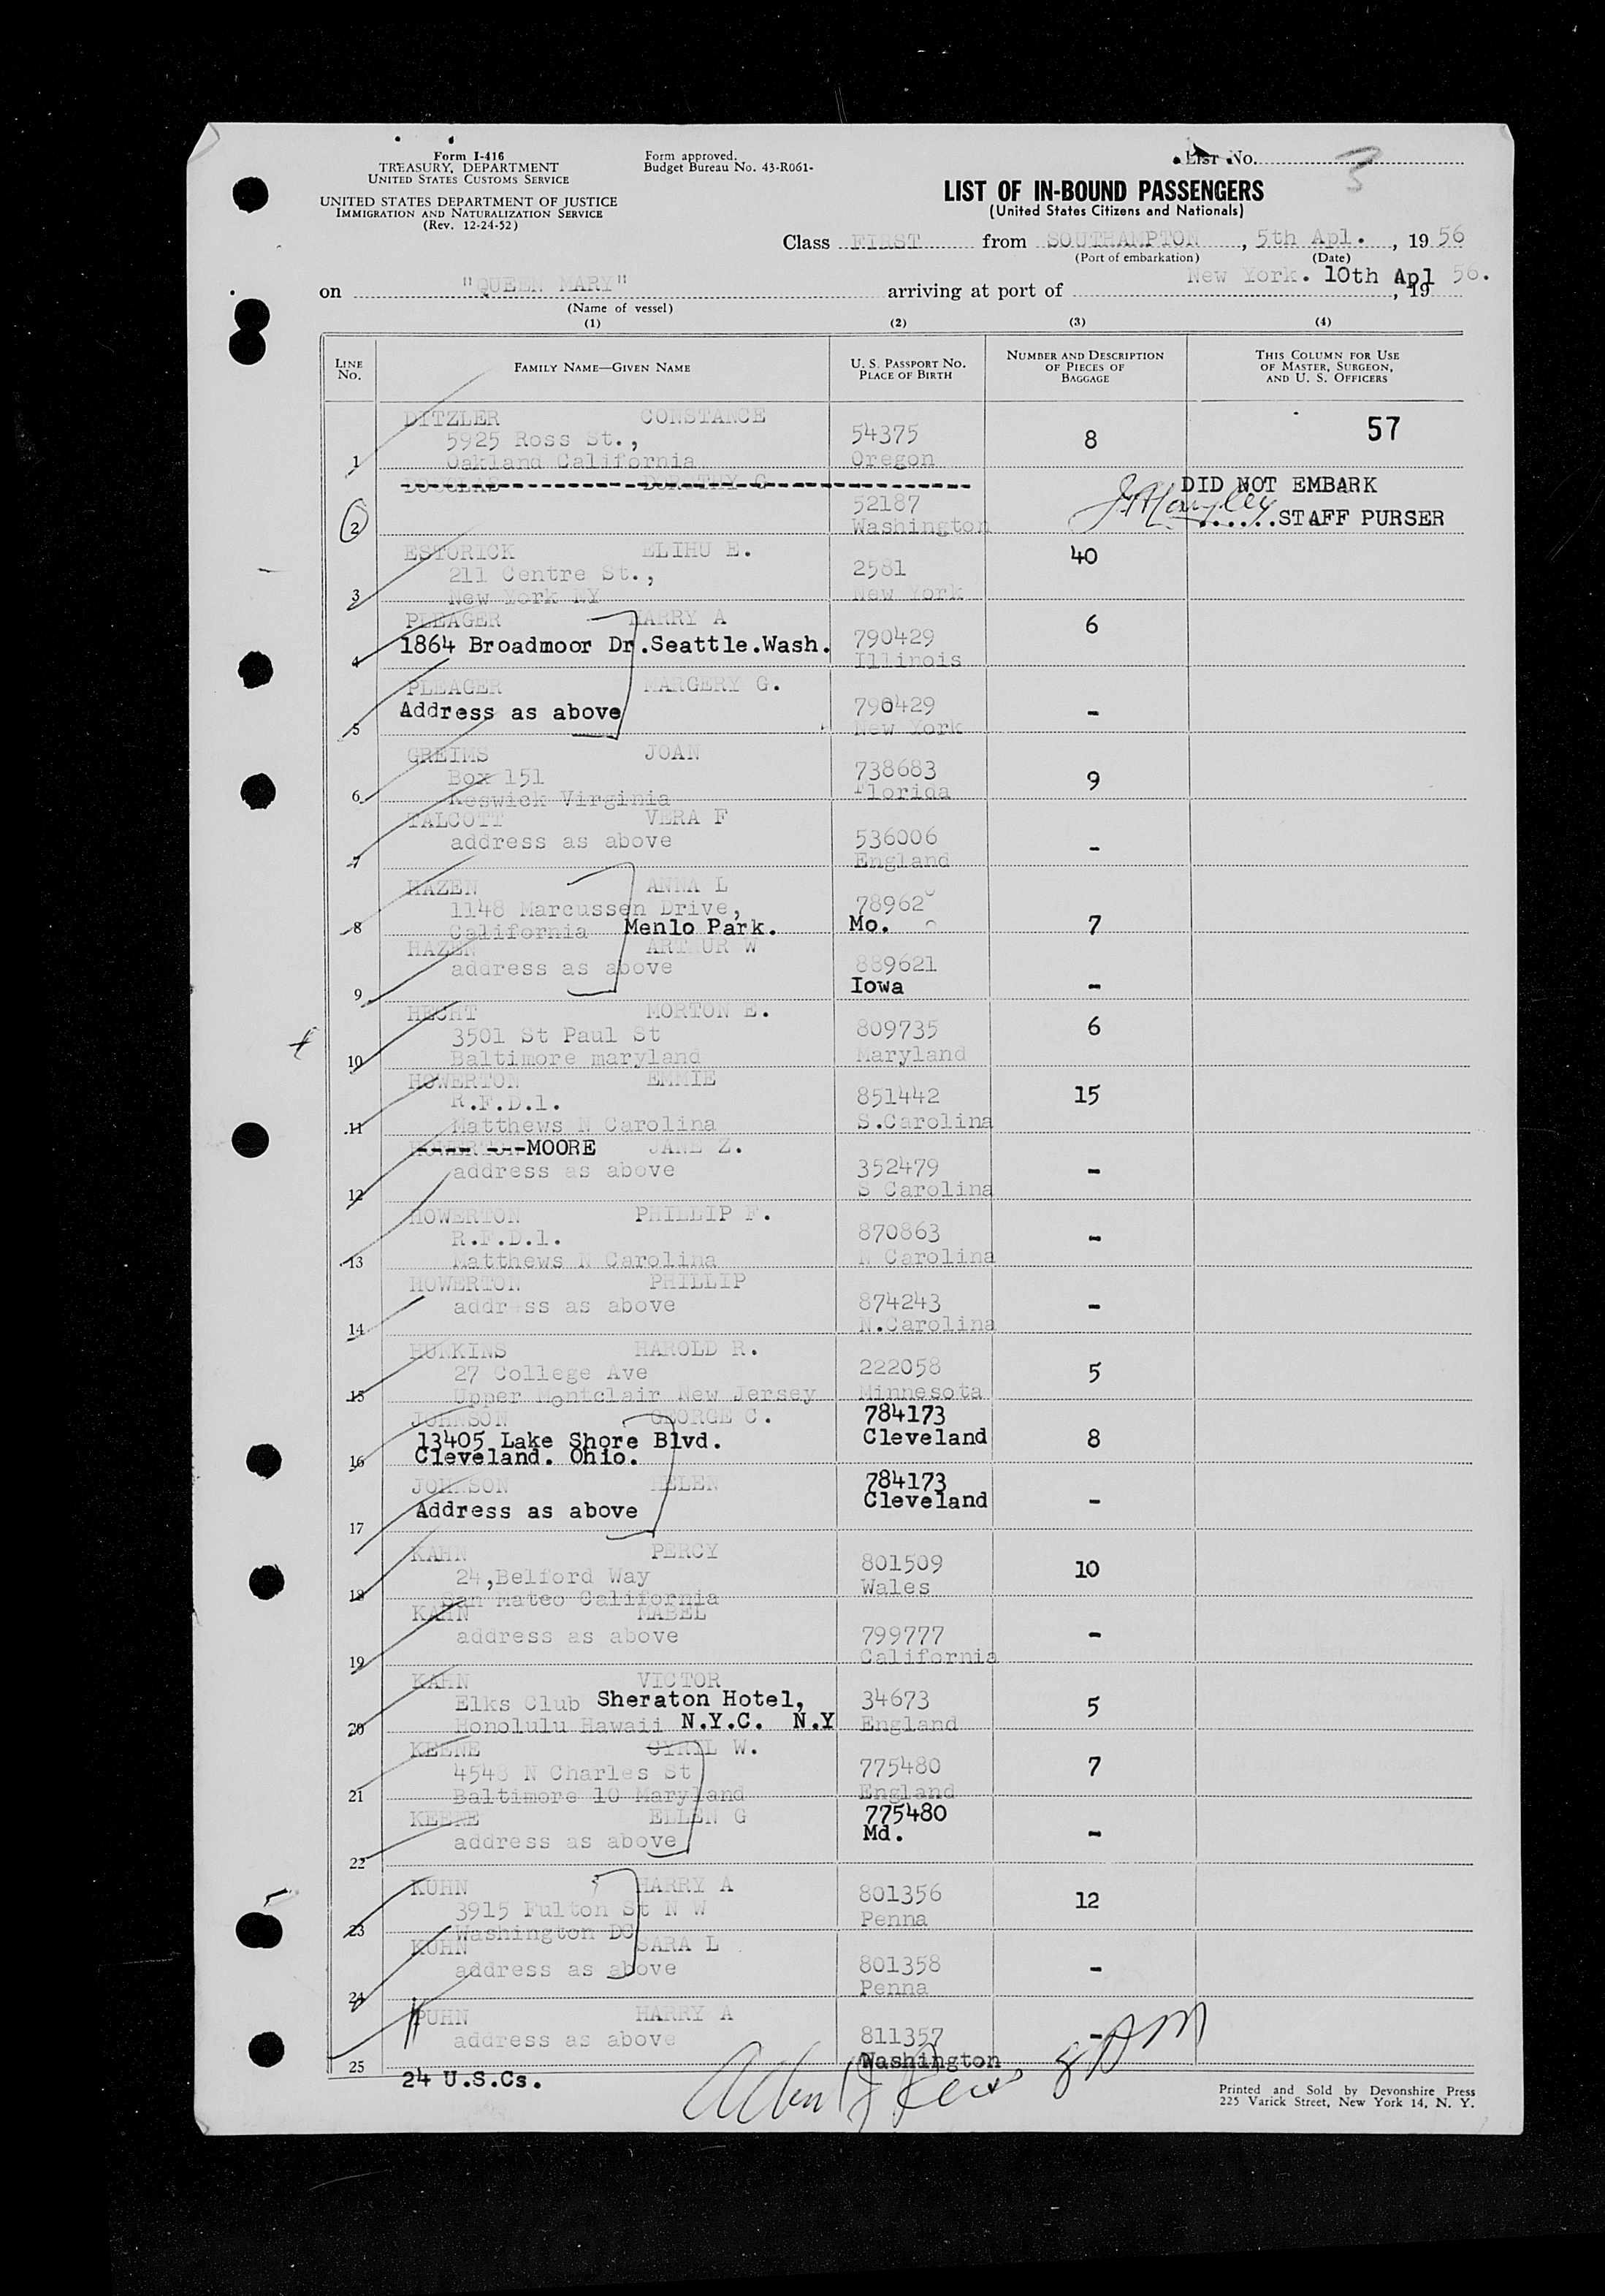 Form I-416
TREASURY DEPARTMENT
UNITED STATES CUSTOMS SERVICE
UNITED STATES DEPARTMENT OF JUSTICE
IMMIGRATION AND NATURALIZATION SERVICE
(Rev. 12-24-52)
Form approved.
Budget Bureau No. 43-R061-
LIST No. 3
LIST OF IN-BOUND PASSENGERS
(United States Citizens and Nationals)
Class FIRST from SOUTHAMPTON, 5th Apl., 19 56
(Port of embarkation) (Date)
on "QUEEN MARY" arriving at port of New York. 10th Apl, 19 56.
(Name of vessel)
(1) (2) (3) (4)
LINE No. FAMILY NAME—GIVEN NAME U. S. PASSPORT NO. PLACE OF BIRTH NUMBER AND DESCRIPTION OF PIECES OF BAGGAGE THIS COLUMN FOR USE OF MASTER, SURGEON, AND U. S. OFFICERS
DITZLER CONSTANCE 57
5925 Ross St., 54375 8
1 Oakland California Oregon
DOUGLAS DOROTHY C DID NOT EMBARK
52187
2 Washington ......STAFF PURSER
ESTORICK ELIHU E. 40
211 Centre St., 2581
3 New York NY New York
PLEAGER HARRY A 6
1864 Broadmoor Dr.Seattle.Wash. 790429
4 Illinois
PLEAGER MARGERY G.
Address as above 790429 -
5 New York
GREIMS JOAN
Box 151 738683 9
6 Keswick Virginia Florida
TALCOTT VERA F
address as above 536006 -
7 England
HAZEN ANNA L
1148 Marcussen Drive, 78962
8 California Menlo Park. Mo. 7
HAZEN ARTHUR W
address as above 889621
9 Iowa -
HECHT MORTON E.
3501 St Paul St 809735 6
10 Baltimore maryland Maryland
HOWERTON EMMIE
R.F.D.1. 851442 15
11 Matthews N Carolina S.Carolina
HOWERTON-MOORE JANE Z.
address as above 352479 -
12 S Carolina
HOWERTON PHILLIP F.
R.F.D.1. 870863 -
13 Matthews N Carolina N Carolina
HOWERTON PHILLIP
address as above 874243 -
14 N.Carolina
HUNKINS HAROLD R.
27 College Ave 222058 5
15 Upper Montclair New Jersey Minnesota
JOHNSON GEORGE C. 784173
13405 Lake Shore Blvd. Cleveland 8
16 Cleveland. Ohio.
JOHNSON HELEN 784173
Address as above Cleveland -
17
KAHN PERCY
24,Belford Way 801509 10
18 San Mateo California Wales
KAHN MABEL
address as above 799777 -
19 California
KAHN VICTOR
Elks Club Sheraton Hotel, 34673 5
20 Honolulu Hawaii N.Y.C. N.Y England
KEENE CYRIL W.
4548 N Charles St 775480 7
21 Baltimore 10 Maryland England
KEENE ELLEN G 775480
address as above Md. -
22
KUHN HARRY A
3915 Fulton St N W 801356 12
23 Washington DC Penna
KUHN SARA L
address as above 801358 -
24 Penna
PUHN HARRY A
address as above 811357 -
25 Washington
24 U.S.Cs. 8 AM
Printed and Sold by Devonshire Press
225 Varick Street, New York 14, N. Y.